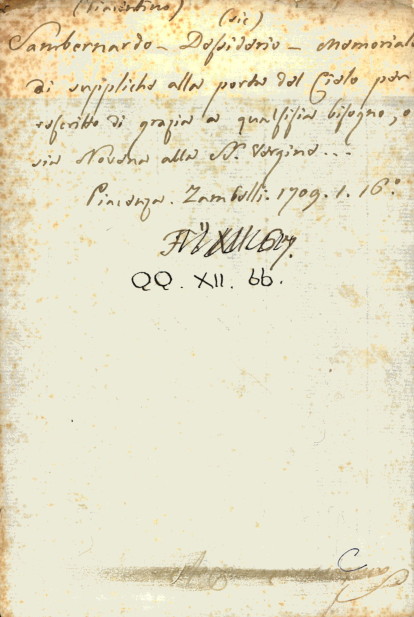 (Piacentino) (sic)
Sambernardo - Desiderio - Memoriale
di suppliche alla porta del Cielo per
rescritto di grazia a qualsisia bisogno, o
sia Novena alla B. Vergine...
Piacenza. Zambelli. 1709. 1. 16°
QQ. XII. 66.
C